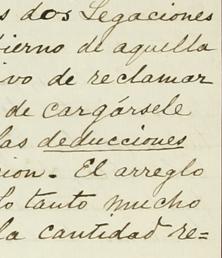 s dos Legaciones
bierno de aquella
ivo de reclamar
de cargársele
las deducciones
cion. El arreglo
lo tanto mucho
la cantidad re=